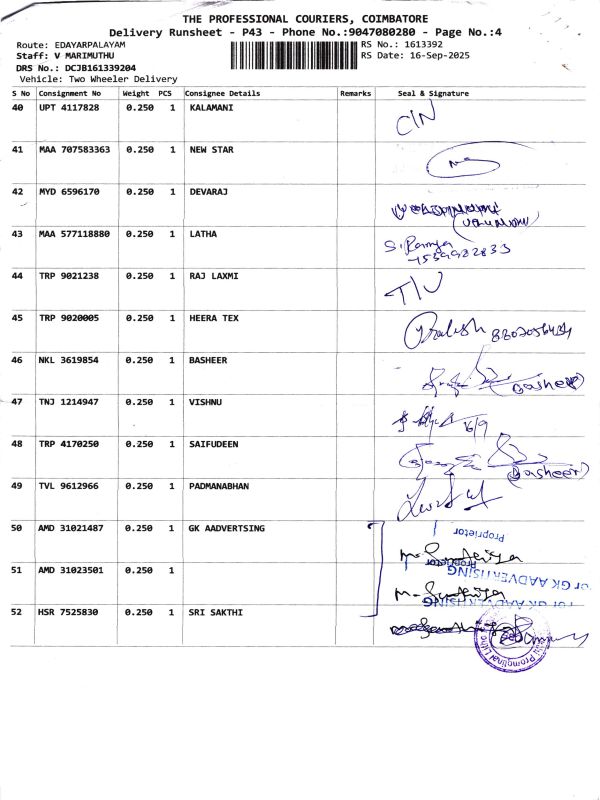 THE PROFESSIONAL COURIERS, COIMBATORE
Delivery Runsheet - P43 - Phone No.:9047080280 - Page No.:4
Route: EDAYARPALAYAM RS No.: 1613392
Staff: V MARIMUTHU RS Date: 16-Sep-2025
DRS No.: DCJB161339204
Vehicle: Two Wheeler Delivery
S No Consignment No Weight PCS Consignee Details Remarks Seal & Signature
40 UPT 4117828 0.250 1 KALAMANI
41 MAA 707583363 0.250 1 NEW STAR
42 MYD 6596170 0.250 1 DEVARAJ
43 MAA 577118880 0.250 1 LATHA S. Ramya
44 TRP 9021238 0.250 1 RAJ LAXMI
45 TRP 9020005 0.250 1 HEERA TEX
46 NKL 3619854 0.250 1 BASHEER (Basheer)
47 TNJ 1214947 0.250 1 VISHNU 16/9
48 TRP 4170250 0.250 1 SAIFUDEEN (Basheer)
49 TVL 9612966 0.250 1 PADMANABHAN
50 AMD 31021487 0.250 1 GK AADVERTSING
Proprietor
51 AMD 31023501 0.250 1
Proprietor
For GK AADVERTISING
For GK AADVERTISING
52 HSR 7525830 0.250 1 SRI SAKTHI